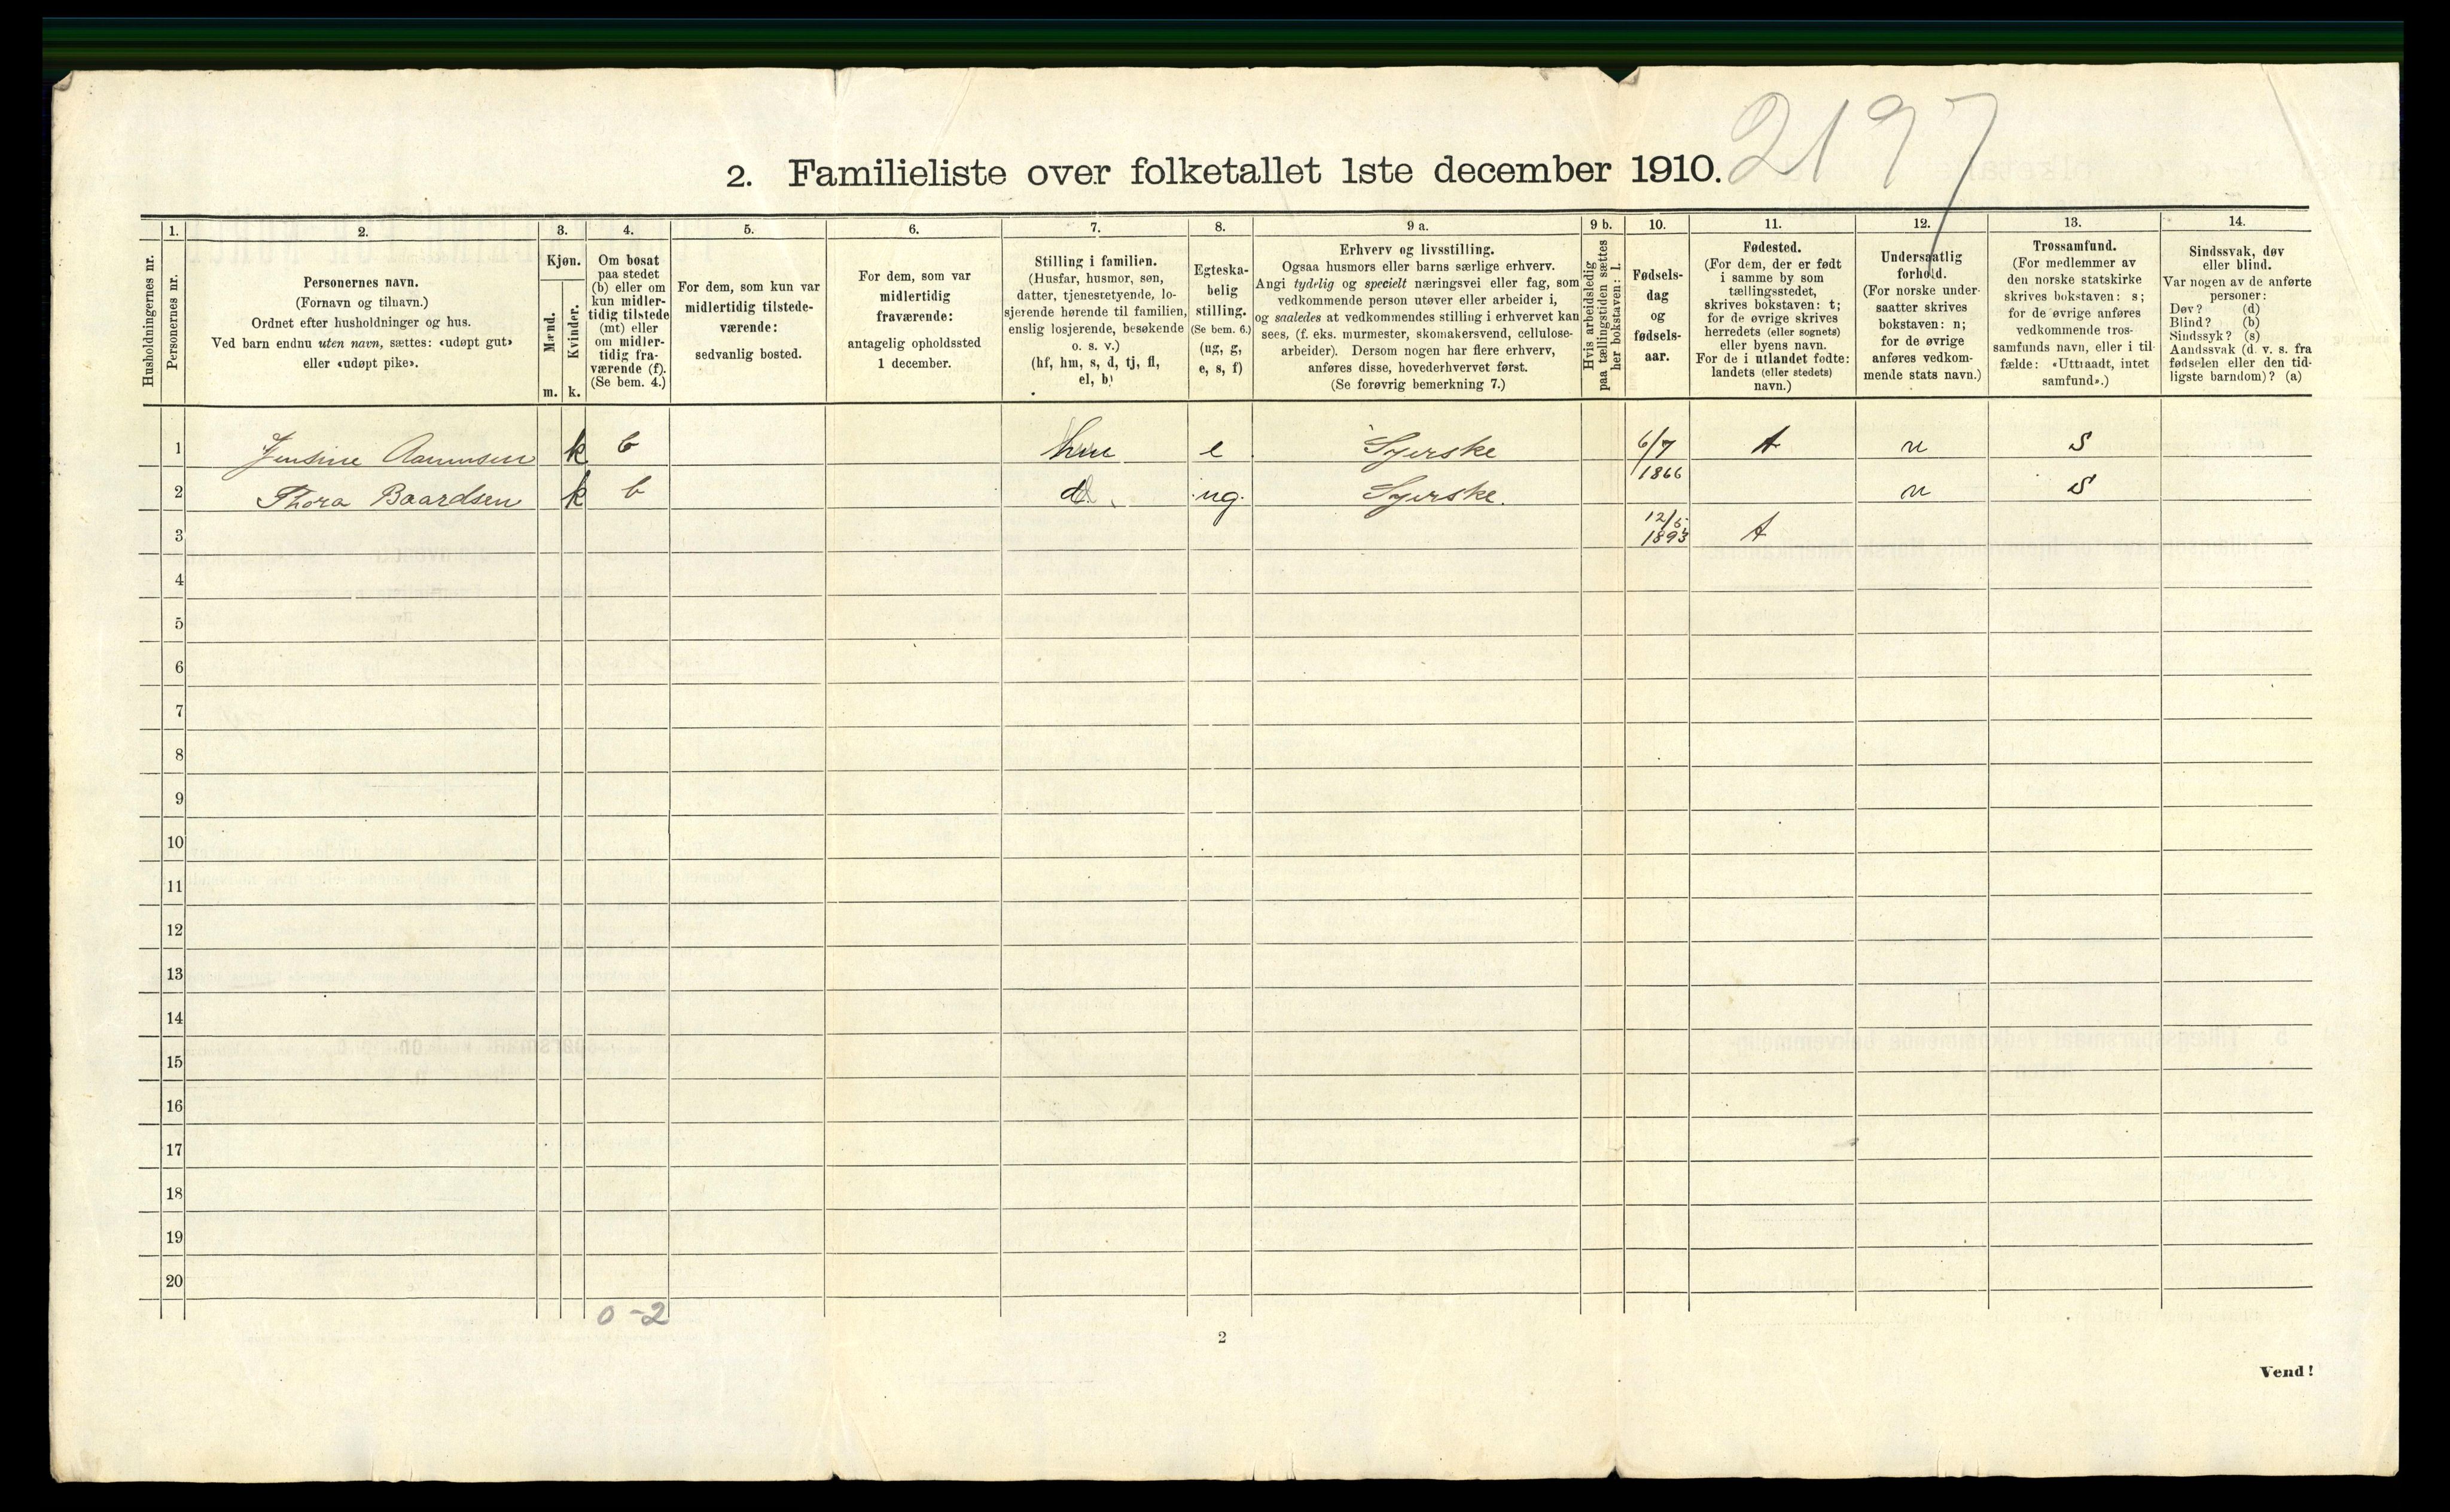 2197
2. Familieliste over folketallet 1ste december 1910.
1. 2. 3. 4. 5. 6. 7. 8. 9 a. 9 b. 10. 11. 12. 13. 14.
Husholdningernes nr.
Personernes nr.
Personernes navn.
(Fornavn og tilnavn.)
Ordnet efter husholdninger og hus.
Ved barn endnu uten navn, sættes: «udøpt gut»
eller «udøpt pike».
Kjøn.
Mænd.
Kvinder.
m. k.
Om bosat
paa stedet
(b) eller om
kun midler-
tidig tilstede
(mt) eller
om midler-
tidig fra-
værende (f).
(Se bem. 4.)
For dem, som kun var
midlertidig tilstede-
værende:
sedvanlig bosted.
For dem, som var
midlertidig
fraværende:
antagelig opholdssted
1 december.
Stilling i familien.
(Husfar, husmor, søn,
datter, tjenestetyende, lo-
sjerende hørende til familien,
enslig losjerende, besøkende
o. s. v.)
(hf, hm, s, d, tj, fl,
el, b)
Egteska-
belig
stilling.
(Se bem. 6.)
(ug, g,
e, s, f)
Erhverv og livsstilling.
Ogsaa husmors eller barns særlige erhverv.
Angi tydelig og specielt næringsvei eller fag, som
vedkommende person utøver eller arbeider i,
og saaledes at vedkommendes stilling i erhvervet kan
sees, (f. eks. murmester, skomakersvend, cellulose-
arbeider). Dersom nogen har flere erhverv,
anføres disse, hovederhvervet først.
(Se forøvrig bemerkning 7.)
Hvis arbeidsledig
paa tællingstiden sættes
her bokstaven: l.
Fødsels-
dag
og
fødsels-
aar.
Fødested.
(For dem, der er født
i samme by som
tællingsstedet,
skrives bokstaven: t;
for de øvrige skrives
herredets (eller sognets)
eller byens navn.
For de i utlandet fødte:
landets (eller stedets)
navn.)
Undersaatlig
forhold.
(For norske under-
saatter skrives
bokstaven: n;
for de øvrige
anføres vedkom-
mende stats navn.)
Trossamfund.
(For medlemmer av
den norske statskirke
skrives bokstaven: s;
for de øvrige anføres
vedkommende tros-
samfunds navn, eller i til-
fælde: «Uttraadt, intet
samfund».)
Sindssvak, døv
eller blind.
Var nogen av de anførte
personer:
Døv? (d)
Blind? (b)
Sindssyk? (s)
Aandssvak (d. v. s. fra
fødselen eller den tid-
ligste barndom)? (a)
1 Jensine k b hm e Syerske 6/7 1866 t n S
2 Thora Baardsen k b d ug. Syerske. n S
3 12/5 1893 t
4
5
6
7
8
9
10
11
12
13
14
15
16
17
18
19
20
0-2
2
Vend!